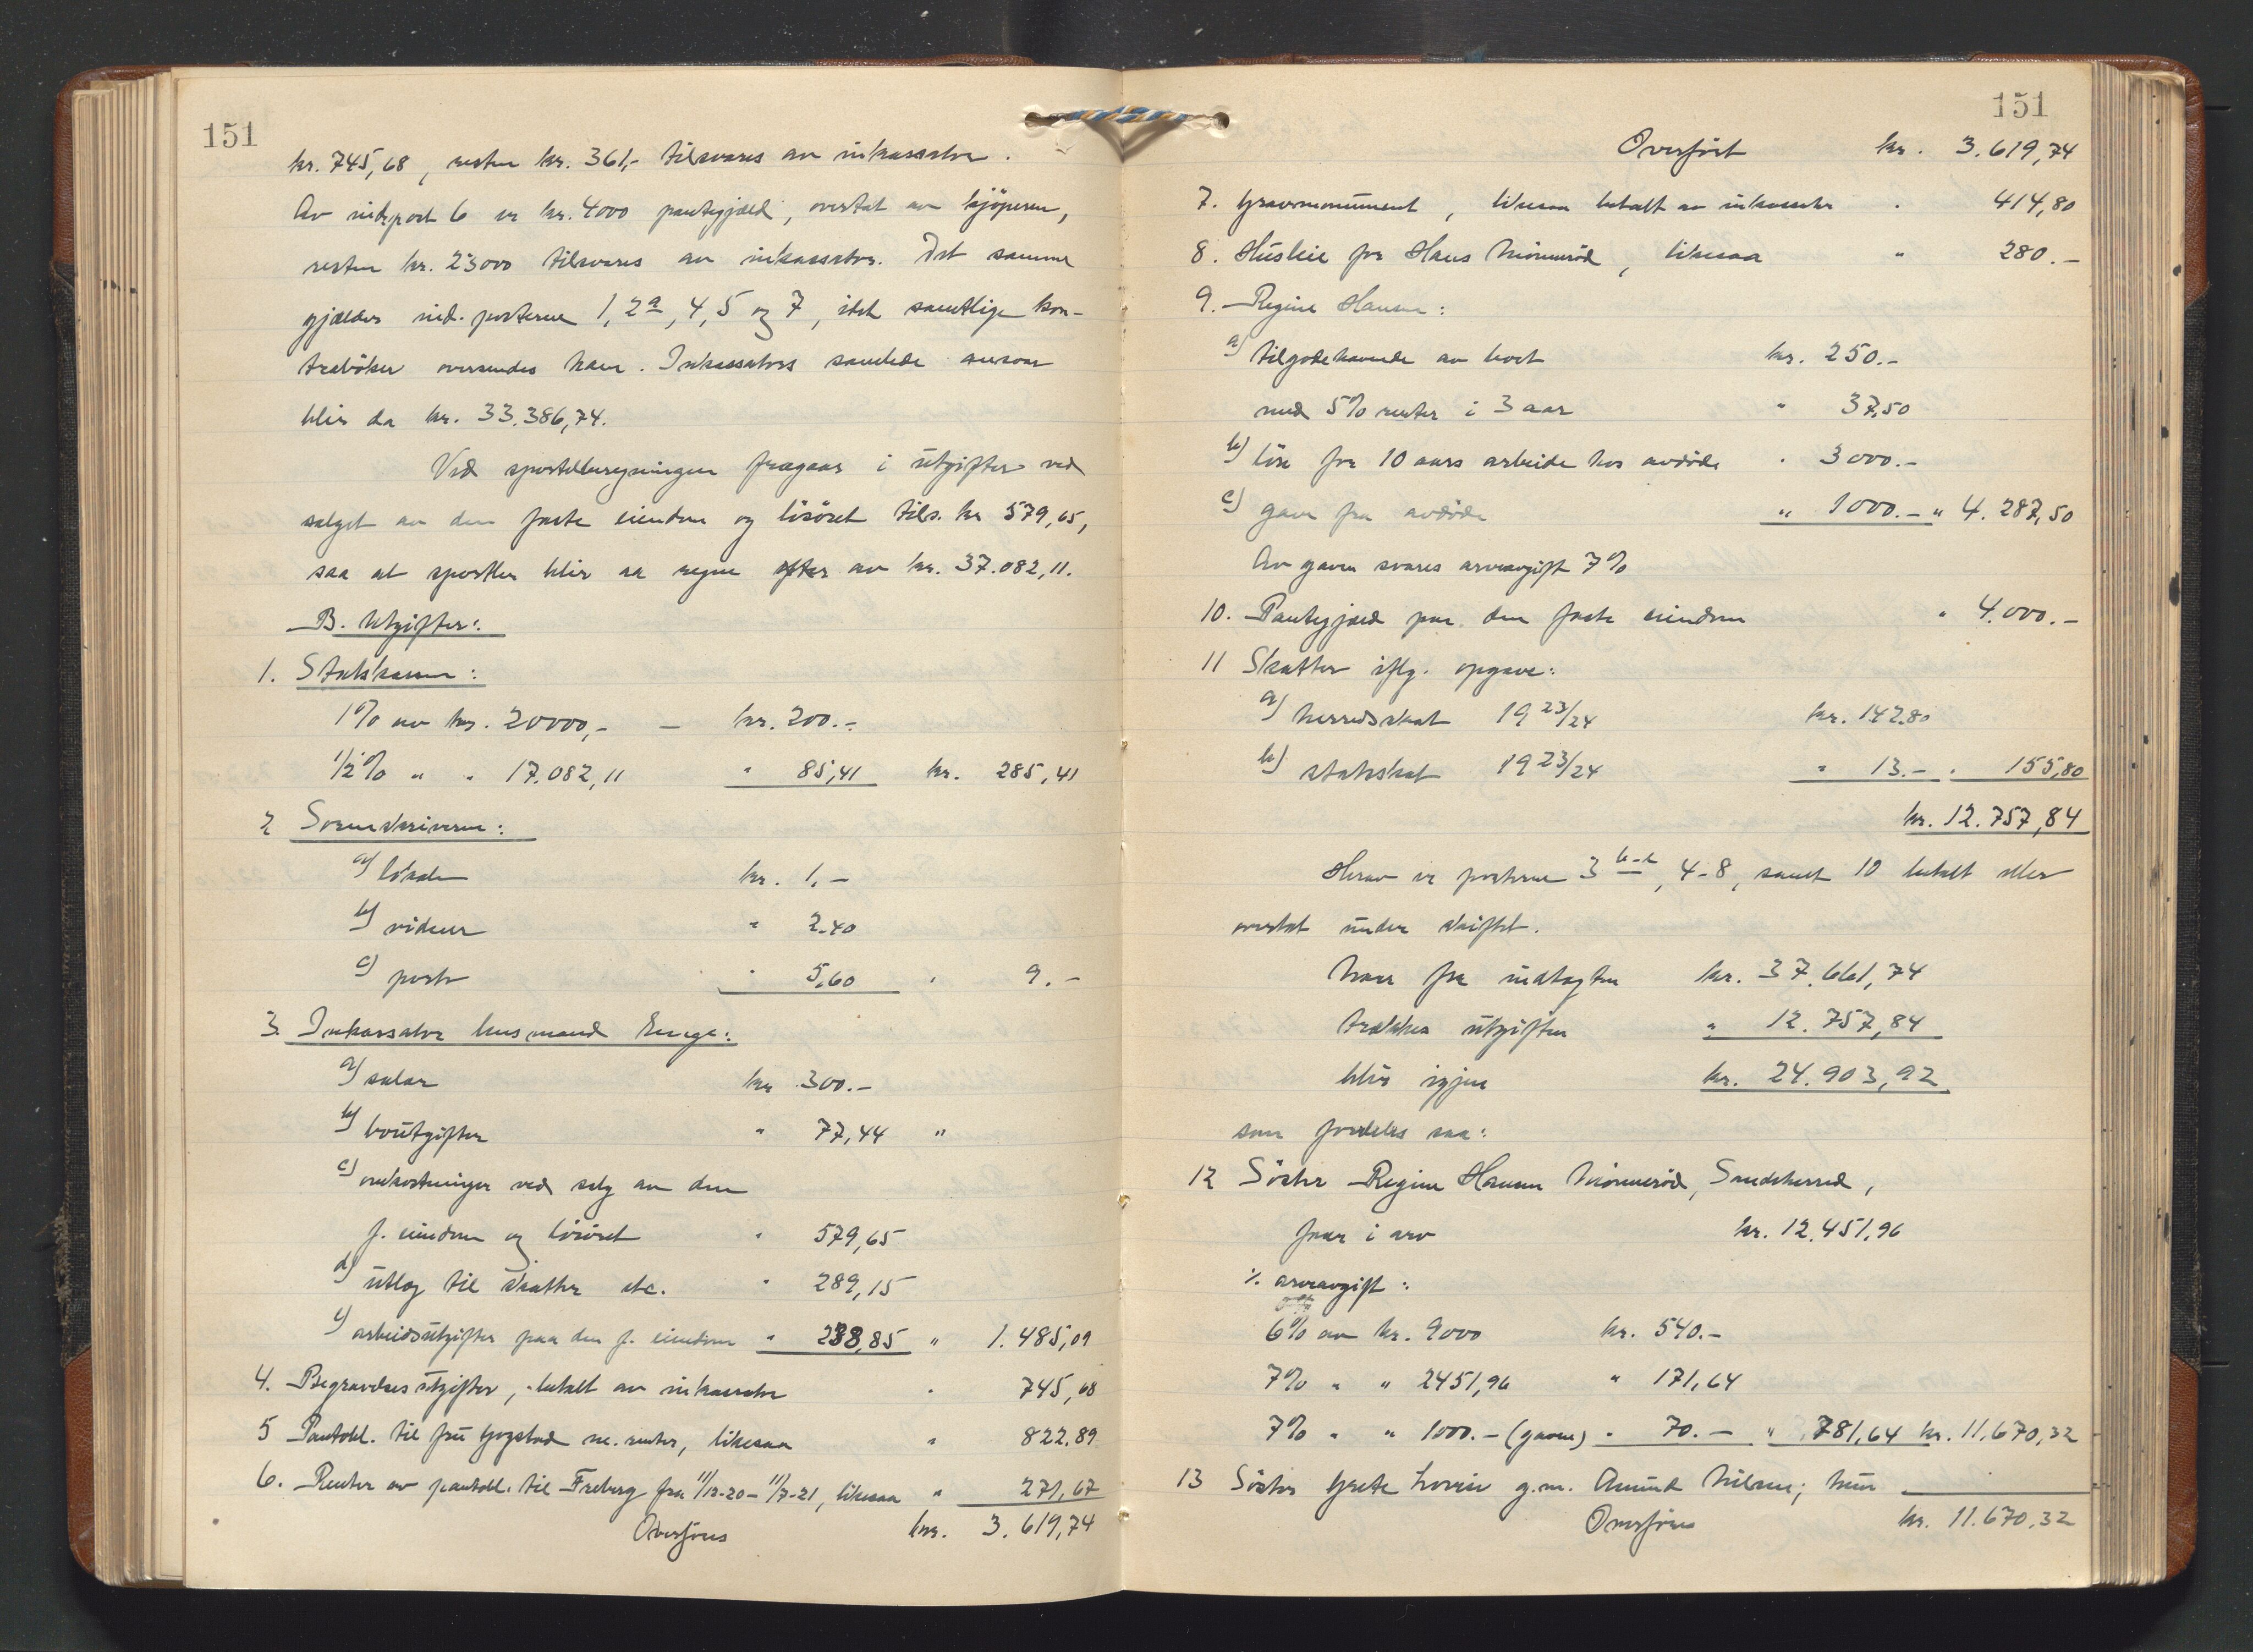 151
kr. 745,68, resten kr. 361,- tilsvares av inkassator.
Av indt.post 6 er kr. 4000 pantegjæld, overtat av kjöperen,
resten kr. 23000 tilsvares av inkassator. Det samme
gjælder ind. posterne 1, 2a, 4, 5 og 7, idet samtlige kon-
trabøker oversendes ham. Inkassators samlede ansvar
blir da kr. 33.386,74.
Ved sportelberegningen fragaar i utgifter ved
salget av den faste eiendom og lösöret tils. kr 579,65,
saa at sportler blir aa regne efter av kr. 37.082,11.
B. Utgifter:
1. Statskassen:
1% av kr. 20000,- — kr. 200.-
1/2% " " 17.082,11 " 85,41 kr. 285,41
2 Sorenskriveren:
a) lösdn kr. 1.-
b) vidner " 2.40
c) porto " 5,60 " 9.-
3. Inkassator husmand Enge:
a) salær kr 300.-
b) boutgifter " 77,44 "
c) omkostninger ved salg av den
f. eiendom og lösöret " 579,65
d) utlæg til skatter etc. " 289,15
e) arbeidsutgifter paa den f. eiendom " 238,85 " 1.485,09
4. Begravelsesutgifter, betalt av inkassator " 745,68
5 Pantobl. til fru Gogstad m. renter, likesaa " 822,89
6. Renter av pantobl. til Freberg fra 11/12-20 - 11/7-21, likesaa " 271,67
Overföres kr. 3.619,74
151
Overfört kr. 3.619,74
7. Gravmonument, likesaa betalt av inkassator " 414,80
8. Husleie fra Hans Unnerød, likesaa " 280.-
9. Regine Hansen:
a) tilgodehavende av boet kr. 250.-
med 5% renter i 3 aar " 37,50
b) lön for 10 aars arbeide hos avdöde " 3000.-
c) gave fra avdöde " 1000.- " 4.287,50
Av gaven svares arveavgift 7%
10. Pantegjæld paa den faste eiendom " 4.000.-
11 Skatter iflg. opgave:
a) herredsskat 1923/24 kr. 142.80
b) statsskat 1923/24 " 13.- " 155,80
kr. 12.757,84
Herav er posterne 3 b-e, 4-8, samt 10 betalt eller
overtat under skiftet.
Naar fra indtægten kr. 37.661,74
trækkes utgiften " 12.757,84
blir igjen kr. 24.903,92
som fordeles saa:
12 Söster Regine Hansen, Sandeherred,
faar i arv kr. 12.451,96
% arveavgift:
6% av kr. 9000 kr. 540.-
7% " " 2451,96 " 171,64
7% " " 1000.- (gaven) " 70.- " 781,64 kr. 11.670,32
13 Söster Grete Lovise g.m. Amund Nilsen; hun
Overföres kr. 11.670,32